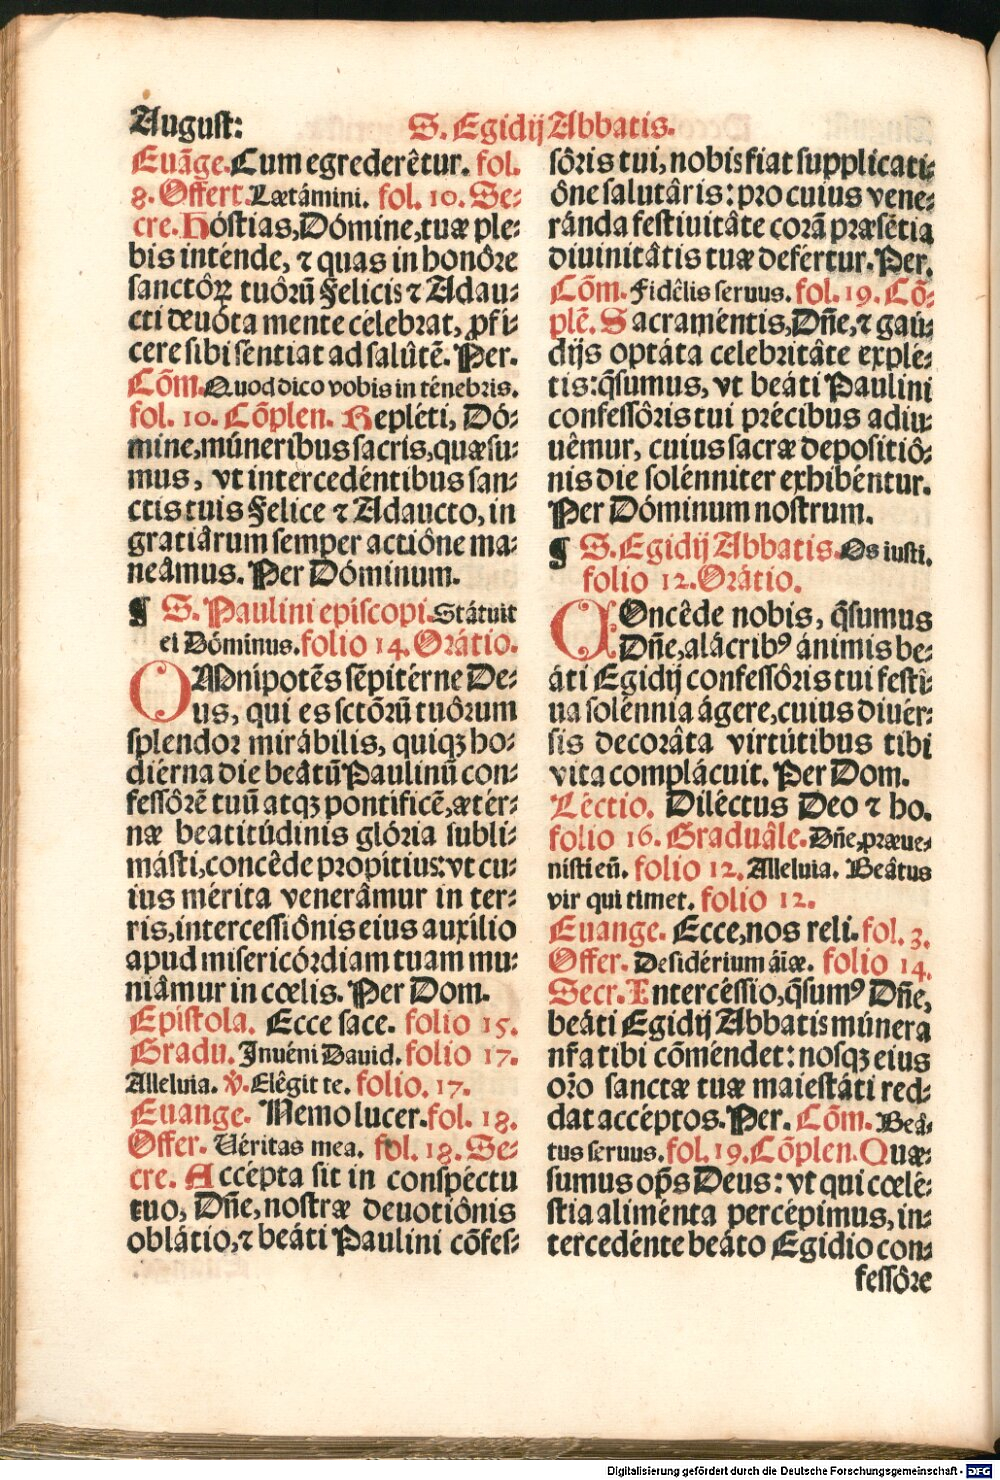 August:
S. Egidij Abbatis.
Euãge. Cum egrederêtur. fol.
8. Offert. Lætámini. fol. 10. Se⸗
cre. Hóstias, Dómine, tuæ ple⸗
bis inténde, ⁊ quas in honôre
sanctôꝝ tuôrũ Felicis ⁊ Adau⸗
cti deuôta mente célebrat, ꝓfi⸗
cere sibi séntiat ad salûtẽ. Per.
Cõm. Quod dico vobis in ténebris.
fol. 10. Cõplen. Repléti, Dó⸗
mine, múneribus sacris, quæsu⸗
mus, vt intercedéntibus san⸗
ctis tuis Felice ⁊ Adaucto, in
gratiârum semper actiône ma⸗
neâmus. Per Dóminum.
¶ S. Paulini episcopi. Státuit
ei Dóminus. folio 14. Orátio.
OMnipotẽs sẽpitérne De⸗
us, qui es sctõrũ tuôrum
splendor mirábilis, quiqꝫ ho⸗
diérna die beátũ Paulinũ con⸗
fessôrẽ tuũ atqꝫ pontificẽ, ætér⸗
næ beatitúdinis glória subli⸗
másti, concêde propítius: vt cu⸗
ius mérita venerâmur in ter⸗
ris, intercessiônis eius auxílio
apud misericórdiam tuam mu⸗
niâmur in cœlis. Per Dom.
Epistola. Ecce sace. folio 15.
Gradu. Inuéni Dauid. folio 17.
Alleluia. ℣. Elêgit te. folio. 17.
Euange. Nemo lucer. fol. 18.
Offer. Uéritas mea. fol. 18. Se⸗
cre. Accépta sit in conspéctu
tuo, Dñe, nostræ deuotiônis
oblátio, ⁊ beáti Paulini cõfes⸗
sôris tui, nobis fiat supplicati⸗
ône salutâris: pro cuius vene⸗
ránda festiuitâte corã præsẽtia
diuinitâtis tuæ defértur. Per.
Cõm. Fidêlis seruus. fol. 19. Cõ⸗
plẽ. Sacraméntis, Dñe, ⁊ gaú⸗
dijs optáta celebritâte explé⸗
tis: q̃sumus, vt beáti Paulini
confessôris tui précibus adiu⸗
uêmur, cuius sacræ depositiô⸗
nis die solénniter exhibéntur.
Per Dóminum nostrum.
¶ S. Egidij Abbatis. Os iusti.
folio 12. Orátio.
COncêde nobis, q̃sumus
Dñe, alácribꝰ ánimis be⸗
áti Egidij confessôris tui festi⸗
ua solénnia ágere, cuius diuér⸗
sis decorâta virtútibus tibi
vita complácuit. Per Dom.
Léctio. Diléctus Deo ⁊ ho.
folio 16. Graduâle. Dñe, præue⸗
nisti eũ. folio 12. Alleluia. Beâtus
vir qui timet. folio 12.
Euange. Ecce, nos reli. fol. 3.
Offer. Desidérium áiæ. folio 14.
Secr. Intercéssio, q̃sumꝰ Dñe,
beáti Egidij Abbatis múnera
nr̃a tibi cõméndet: nosqꝫ eius
or̃o sanctæ tuæ maiestáti red⸗
dat accéptos. Per. Cõm. Beâ⸗
tus seruus. fol. 19. Cõplen. Quæ⸗
sumus op̃s Deus: vt qui cœlé⸗
stia aliménta percépimus, in⸗
tercedénte beáto Egidio con⸗
fessôre
Digitalisierung gefördert durch die Deutsche Forschungsgemeinschaft - DFG